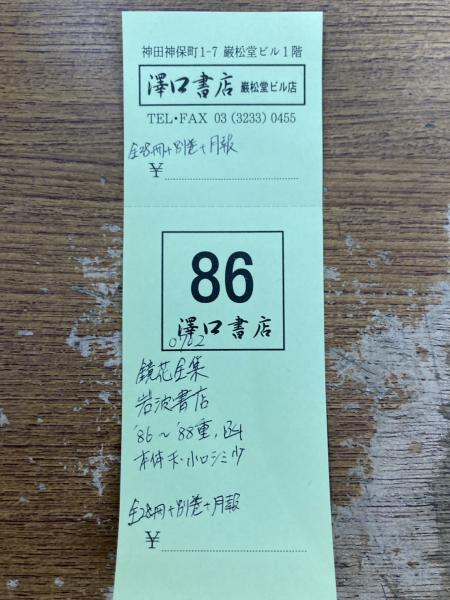 神田神保町1-7 巌松堂ビル1階
澤口書店 巌松堂ビル店
TEL・FAX 03 (3233) 0455
全28冊+別巻+月報
¥
86
澤口書店
0702
鏡花全集
岩波書店
'86～'88重, 函
本体天・小口シミ少
全28冊+別巻+月報
¥